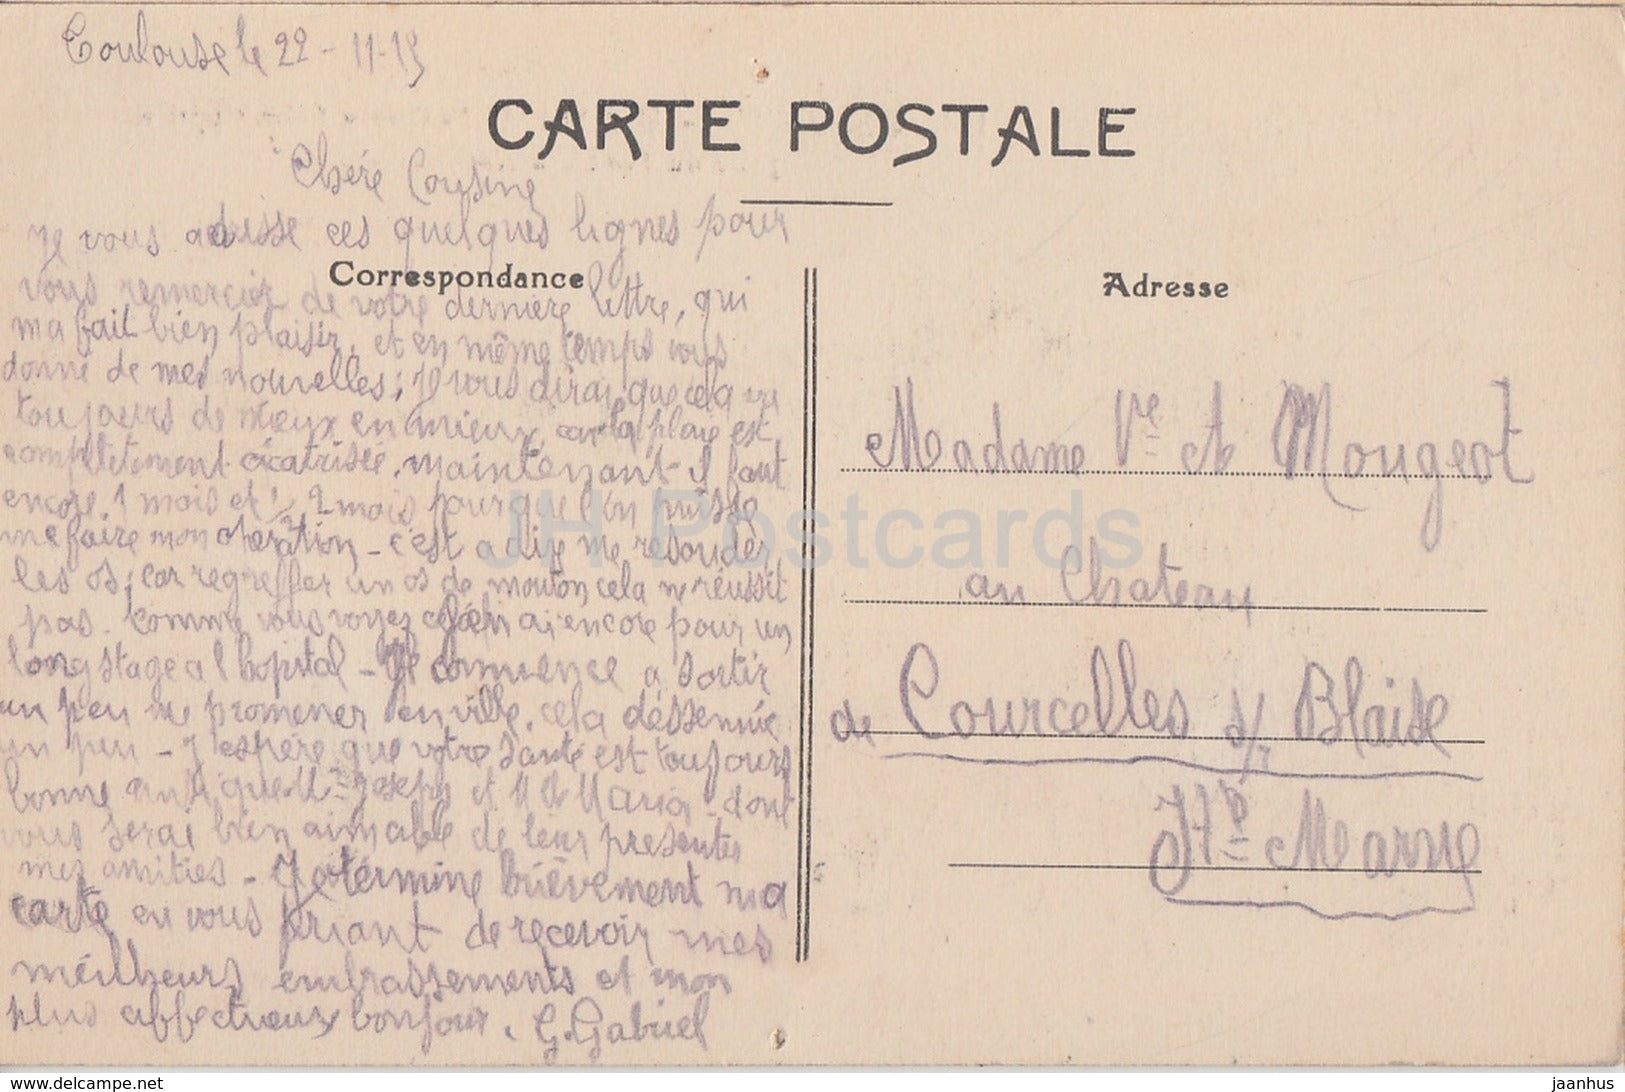 Toulouse le 22-11-15
CARTE POSTALE
Chère Cousine
Je vous adresse ces quelques lignes pour
Correspondance
vous remercier de votre dernière lettre, qui
ma fait bien plaisir, et en même temps vous
donné de mes nouvelles; Je vous dirai que cela va
toujours de mieux en mieux, car la plaie est
complètement cicatrisée. maintenant il faut
encore 1 mois et 1/2 2 mois pour que l'on puisse
me faire mon opération - c'est a dire me resouder
les os; car regreffer un os de mouton cela ne réussit
pas. Comme vous voyez j'en ai encore pour un
long stage a l hopital - Je commence a sortir
un peu me promener en ville, cela désennuie
un peu - J'espère que votre santé est toujours
bonne que Joseph et Maria - dont
vous serai bien aimable de leur presenter
mes amitiés - Je termine brièvement ma
carte en vous priant de recevoir mes
meilheurs embrassements et mon
plus affectueux bonjour. G. Gabriel
Adresse
Madame Vve A Mougeot
au Chateau
de Courcelles s/ Blaise
Hte Marne
JH Postcards
delcampe.net
jaanhus